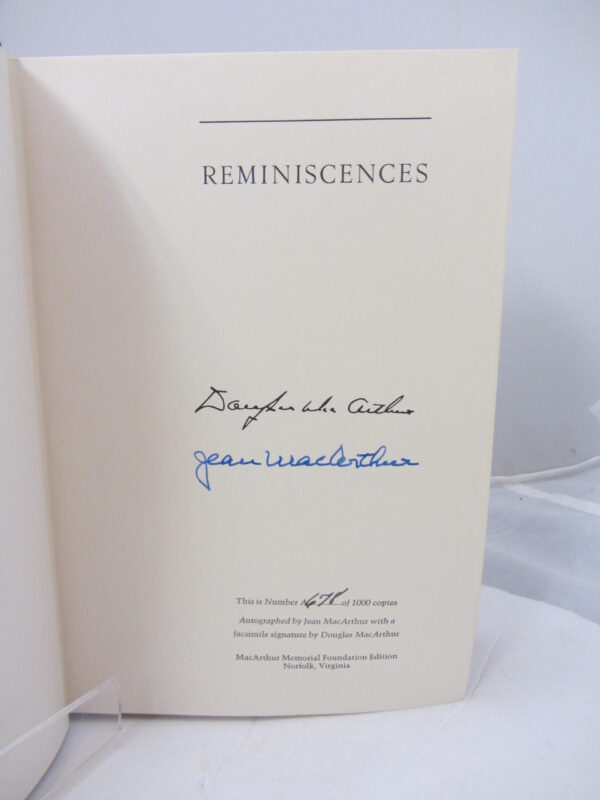 REMINISCENCES
Douglas MacArthur
Jean MacArthur
This is Number A678 of 1000 copies
Autographed by Jean MacArthur with a
facsimile signature by Douglas MacArthur
MacArthur Memorial Foundation Edition
Norfolk, Virginia